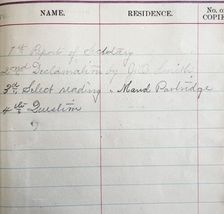 NAME. RESIDENCE. No. of COPIE
1st Report of Secretary
2nd Declamation by J.O. Smith
3rd Select reading, Maud Partridge
4th Question
?